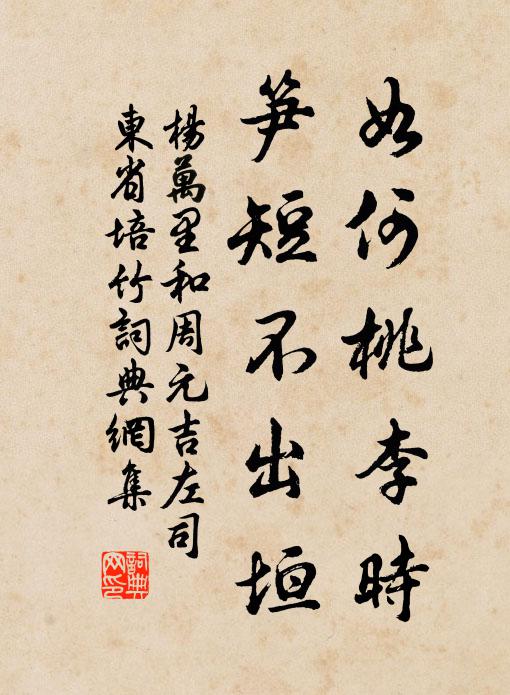 如何桃李時
笋短不出垣
楊萬里和周元吉左司
東省培竹詞典網集
詞典網印